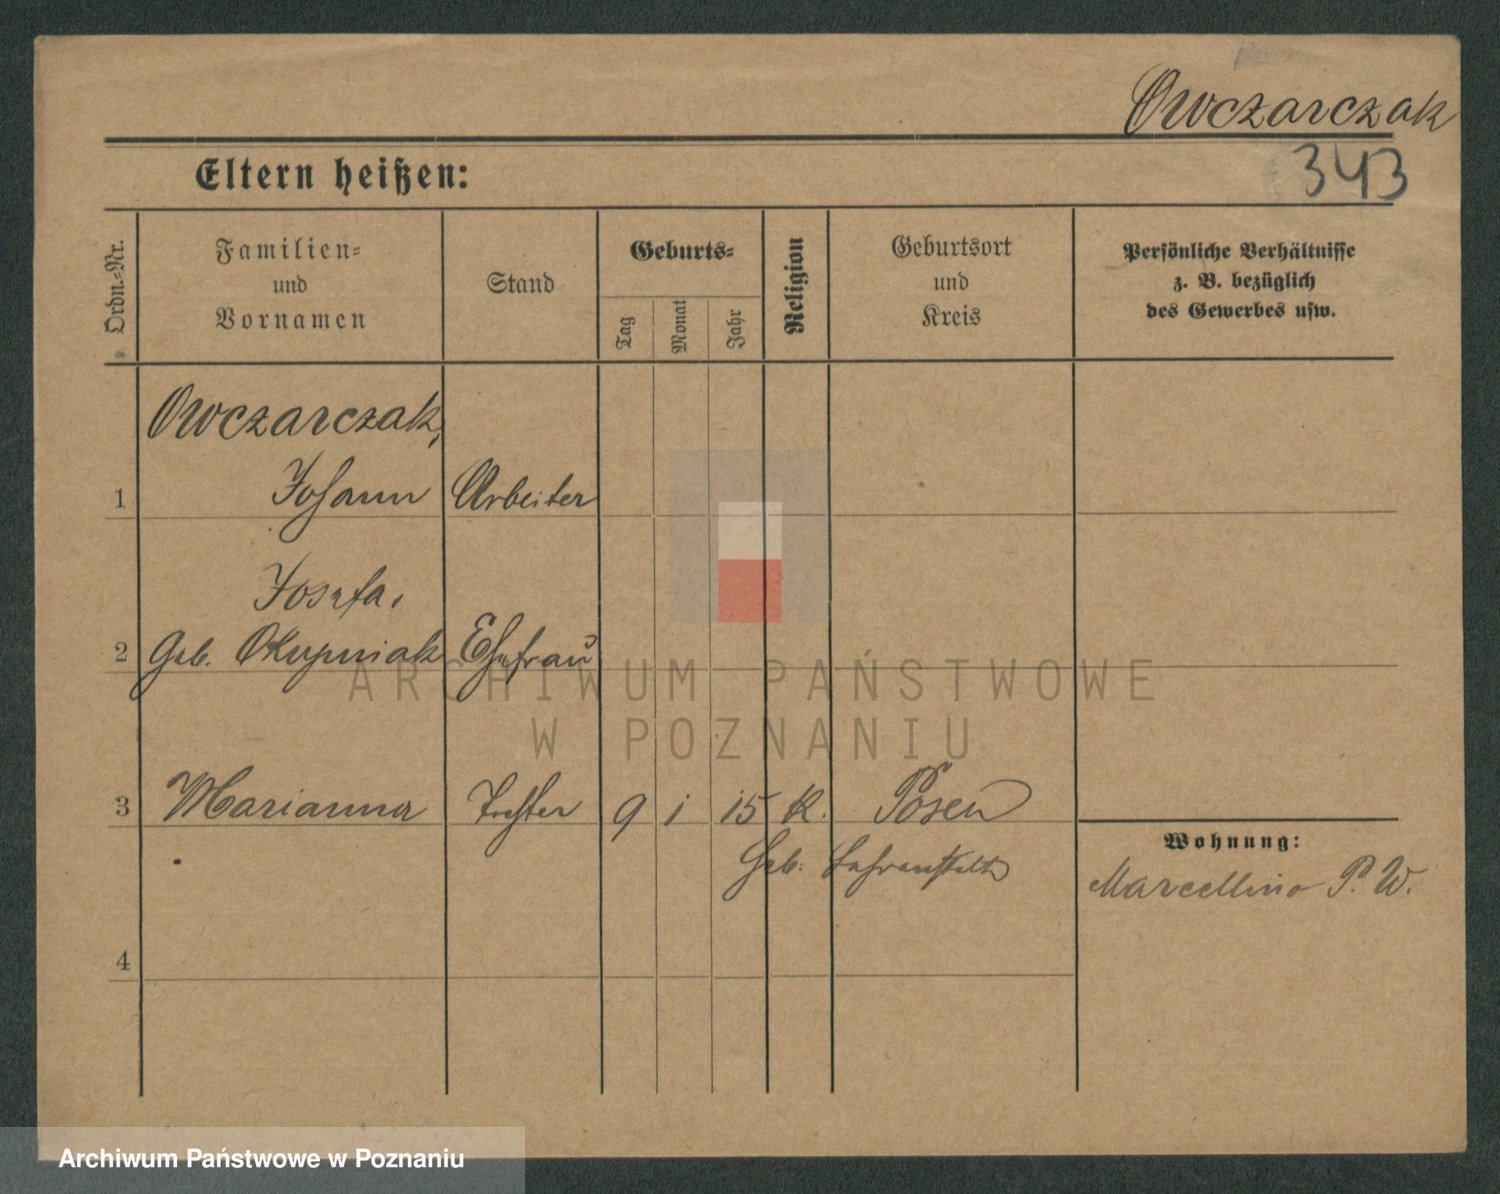 Owczarczak
343
Eltern heißen:
Ordn.-Nr.
Familien-
und
Vornamen
Stand
Geburts-
Tag
Monat
Jahr
Religion
Geburtsort
und
Kreis
Persönliche Verhältnisse
z. B. bezüglich
des Gewerbes usw.
Owczarczak,
1 Johann Arbeiter
Josefa,
2 geb. Okupniak Ehefrau
3 Marianna Tochter 9 1 15 K. Posen
Wohnung:
Geb.
Marcellino P. W.
4
ARCHIWUM PAŃSTWOWE
W POZNANIU
Archiwum Państwowe w Poznaniu